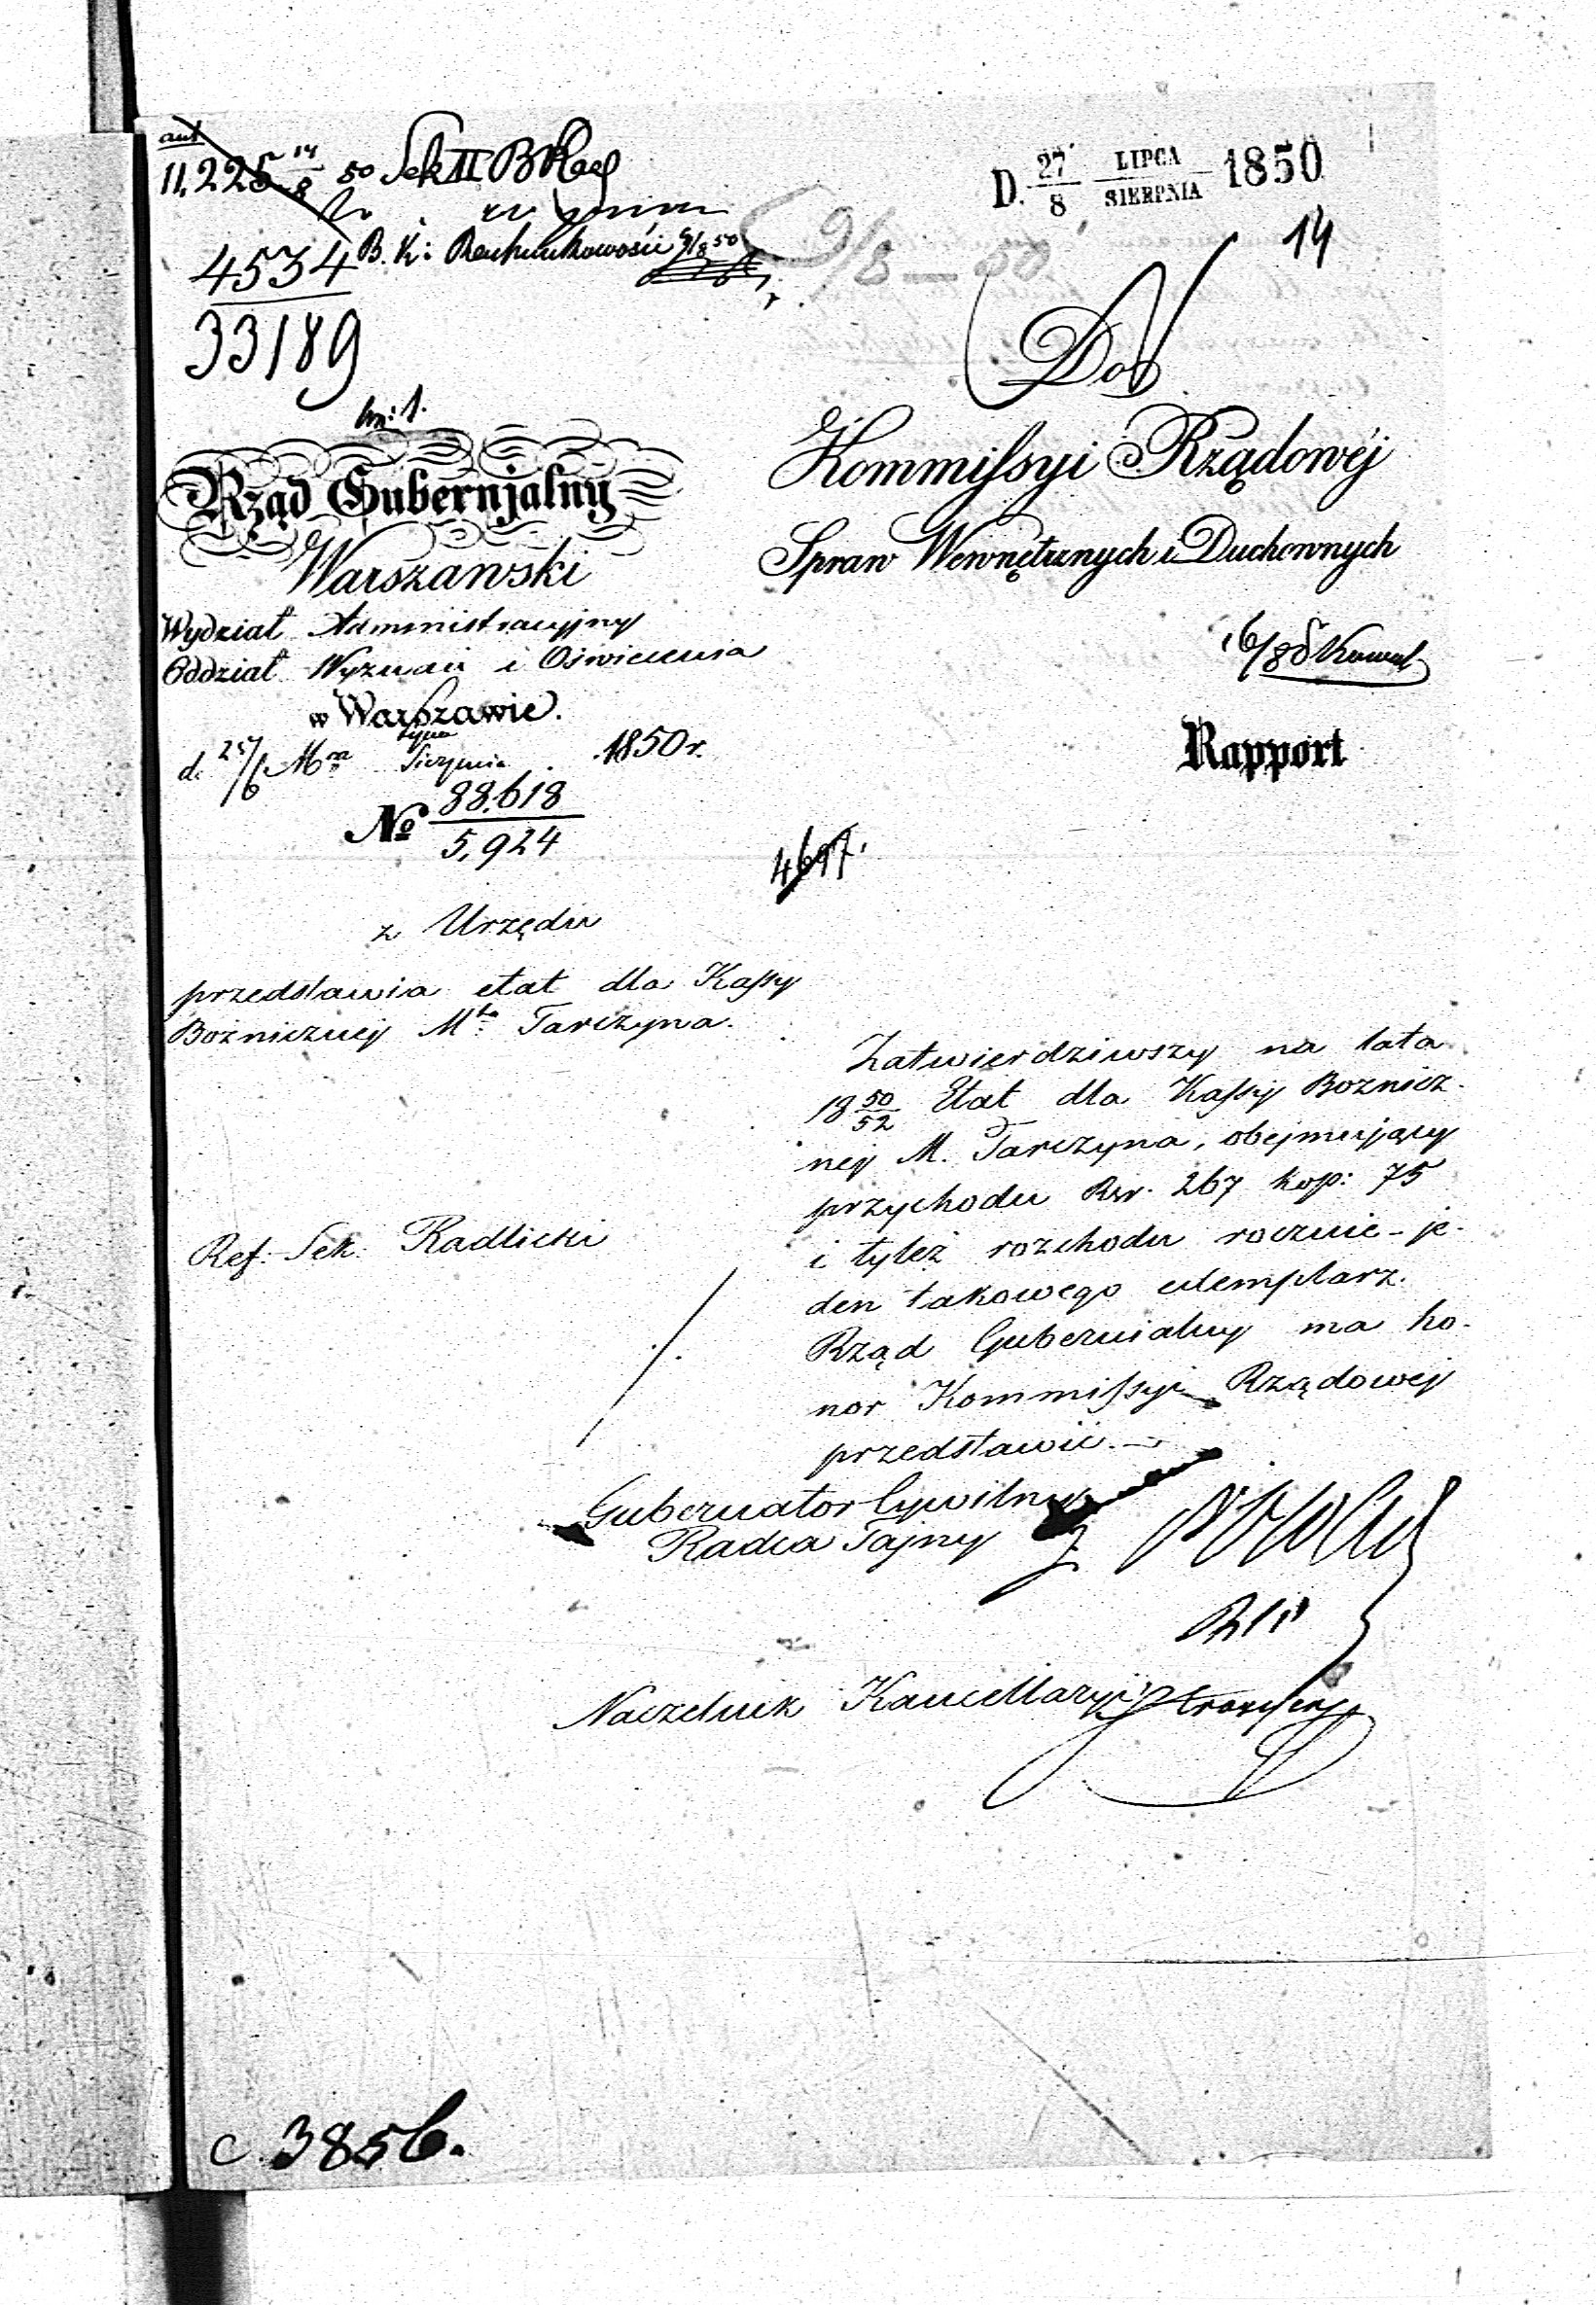 11,225 14/8 50 Sek II
4534 B. K: Rachunkowości 9/8 50
33189
D. 27/8 LIPCA/SIERPNIA 1850
9/8 — 50
14
Do
Kommissyi Rządowéj
Spraw Wewnętrznych i Duchownych
Rapport
Rząd Gubernjalny
Warszawski
Wydział Administracyjny
Oddział Wyznań i Oświecenia
w Warszawie.
d. 25/6 Mca Lipca/Sierpnia 1850 r.
No 88.618/5,924
4697.
z Urzędu
przedstawia etat dla Kassy
Bożniczney Mta Tarczyna.
Ref: Sek: Radlicki
Zatwierdziwszy na lata
18 50/52 Etat dla Kassy Boznicz-
ney M. Tarczyna, obejmujący
przychodu Rsr. 267 kop: 75
i tyleż rozchodu rocznie - je-
den takowego exemplarz.
Rząd Gubernialny ma ho-
nor Kommissyi Rządowey
przedstawić.
Gubernator Cywilny
Radca Tajny
Naczelnik Kancellaryi
C. 3856.